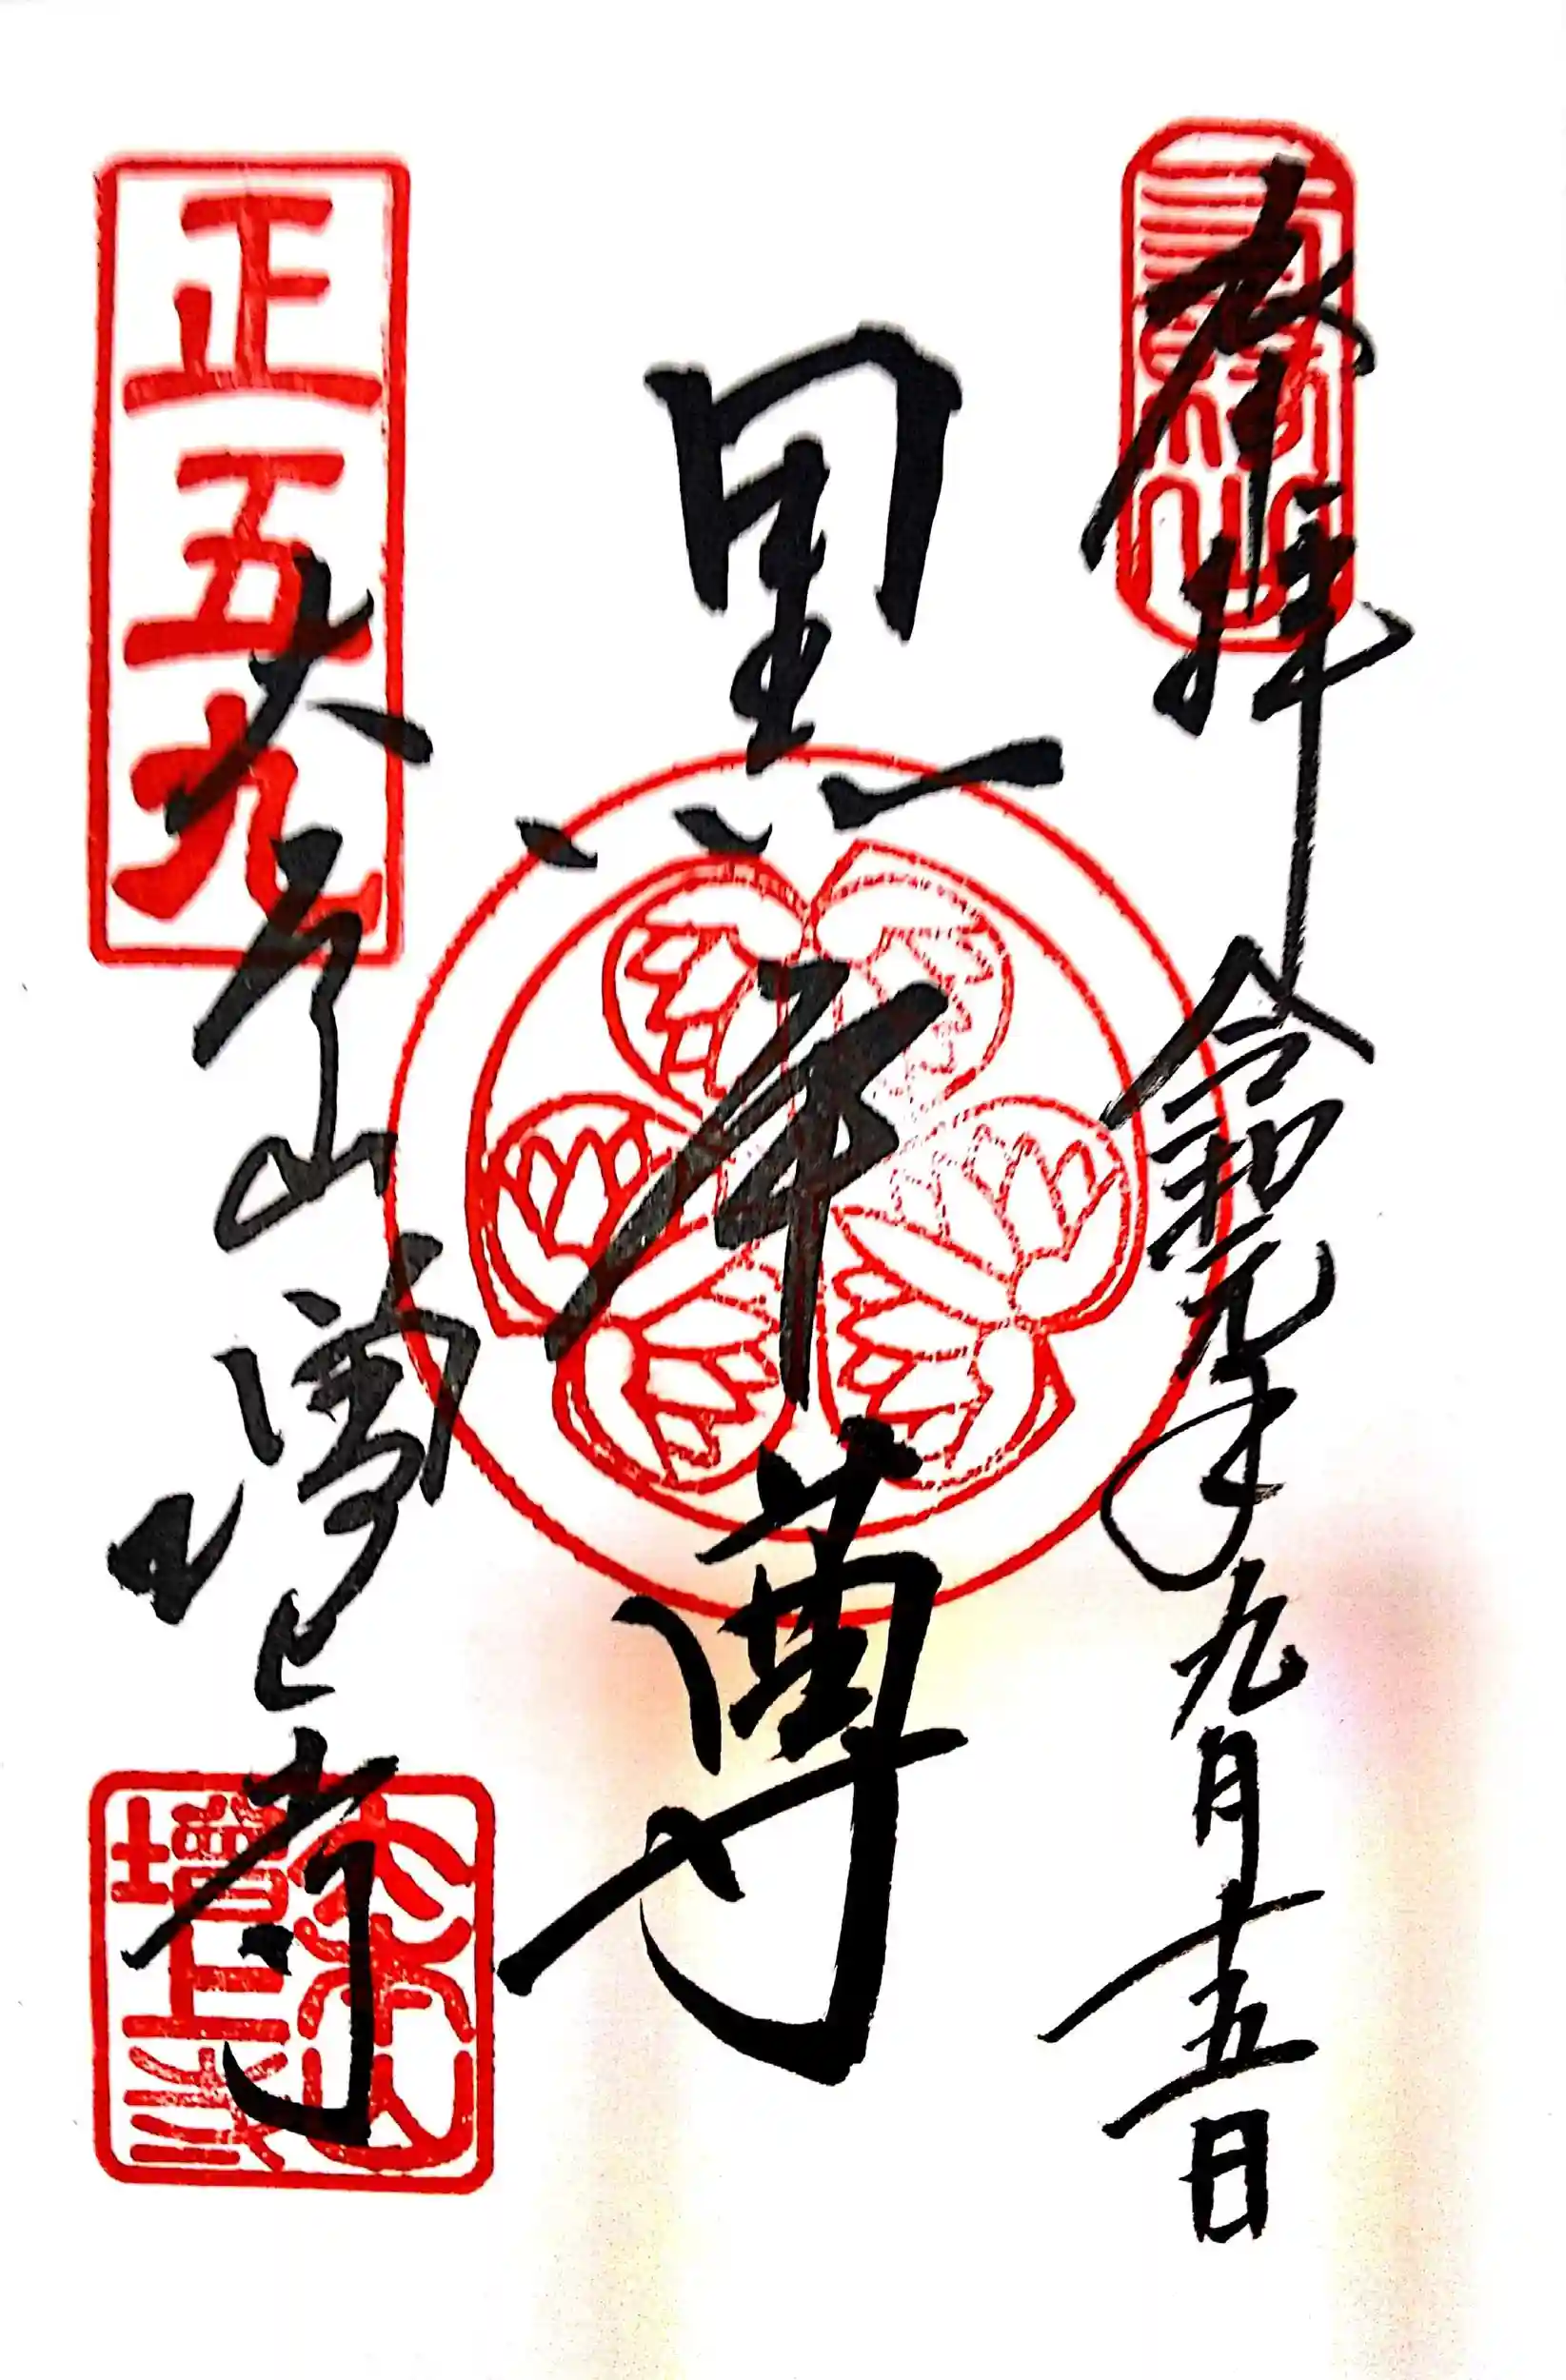 奉拝 令和元年九月十五日
黒本尊
正五九
大本山增上寺
大本山
增上寺